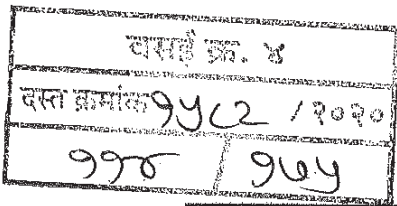 वसई क्र. ४
दस्त क्रमांक १५८२ / २०२०
११४ / १७५